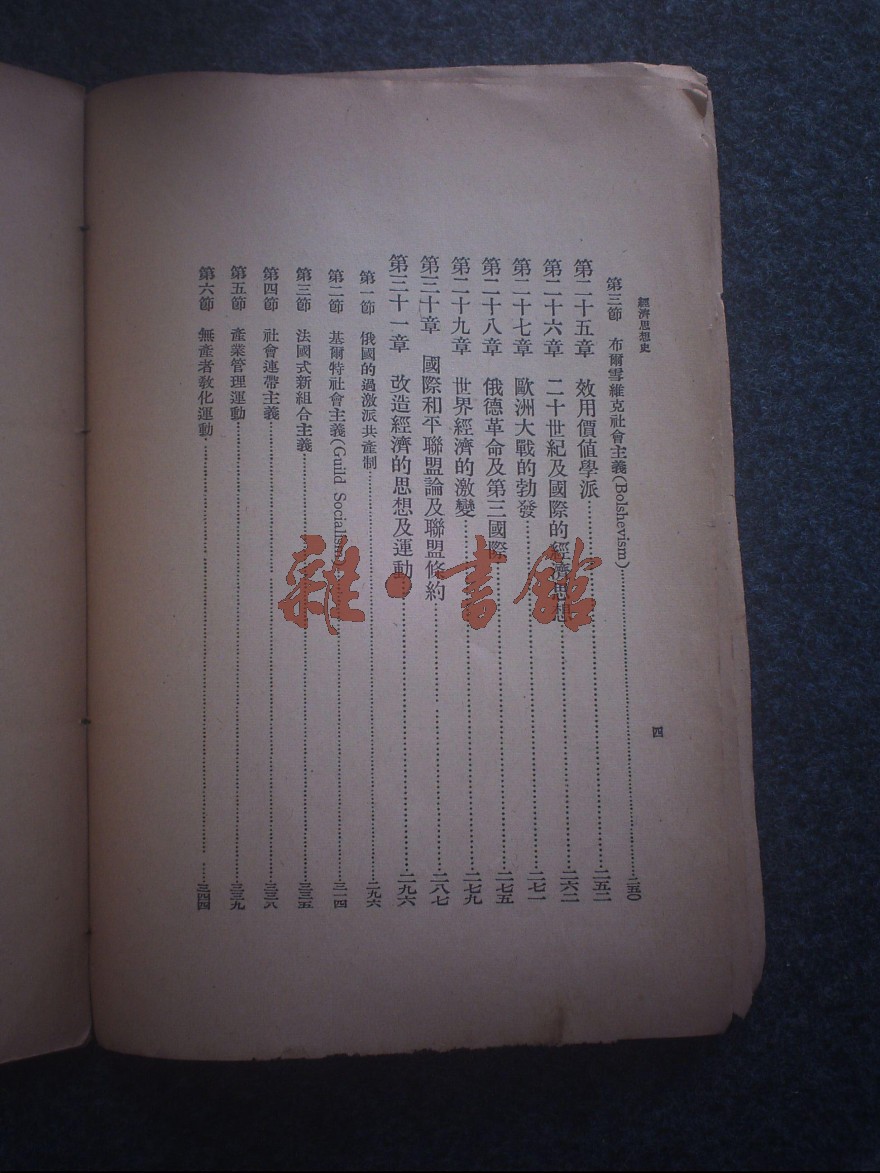 經濟思想史
四
第三節 布爾雪維克社會主義(Bolshevism)……二五〇
第二十五章 效用價值學派……二五二
第二十六章 二十世紀及國際的經濟思想……二六二
第二十七章 歐洲大戰的勃發……二七一
第二十八章 俄德革命及第三國際……二七五
第二十九章 世界經濟的激變……二七九
第三十章 國際和平聯盟論及聯盟條約……二八七
第三十一章 改造經濟的思想及運動……二九六
第一節 俄國的過激派共產制……二九六
第二節 基爾特社會主義(Guild Socialism)……三一四
第三節 法國式新組合主義……三三五
第四節 社會連帶主義……三三八
第五節 產業管理運動……三三九
第六節 無產者敎化運動……三四四
雜·書館